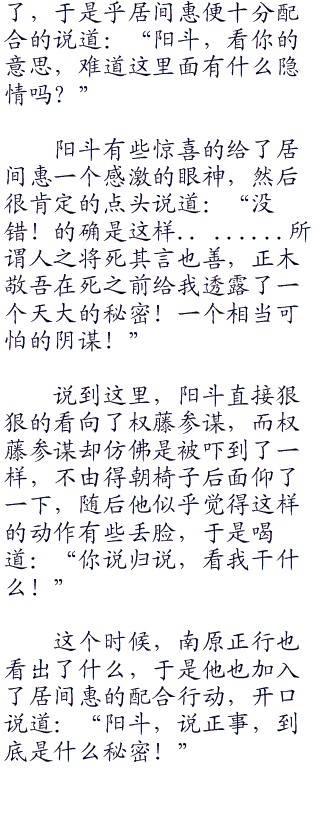 了，于是乎居间惠便十分配
合的说道：“阳斗，看你的
意思，难道这里面有什么隐
情吗？”
阳斗有些惊喜的给了居
间惠一个感激的眼神，然后
很肯定的点头说道：“没
错！的确是这样.. ......所
谓人之将死其言也善，正木
敬吾在死之前给我透露了一
个天大的秘密！一个相当可
怕的阴谋！”
说到这里，阳斗直接狠
狠的看向了权藤参谋，而权
藤参谋却仿佛是被吓到了一
样，不由得朝椅子后面仰了
一下，随后他似乎觉得这样
的动作有些丢脸，于是喝
道：“你说归说，看我干什
么！”
这个时候，南原正行也
看出了什么，于是他也加入
了居间惠的配合行动，开口
说道：“阳斗，说正事，到
底是什么秘密！”